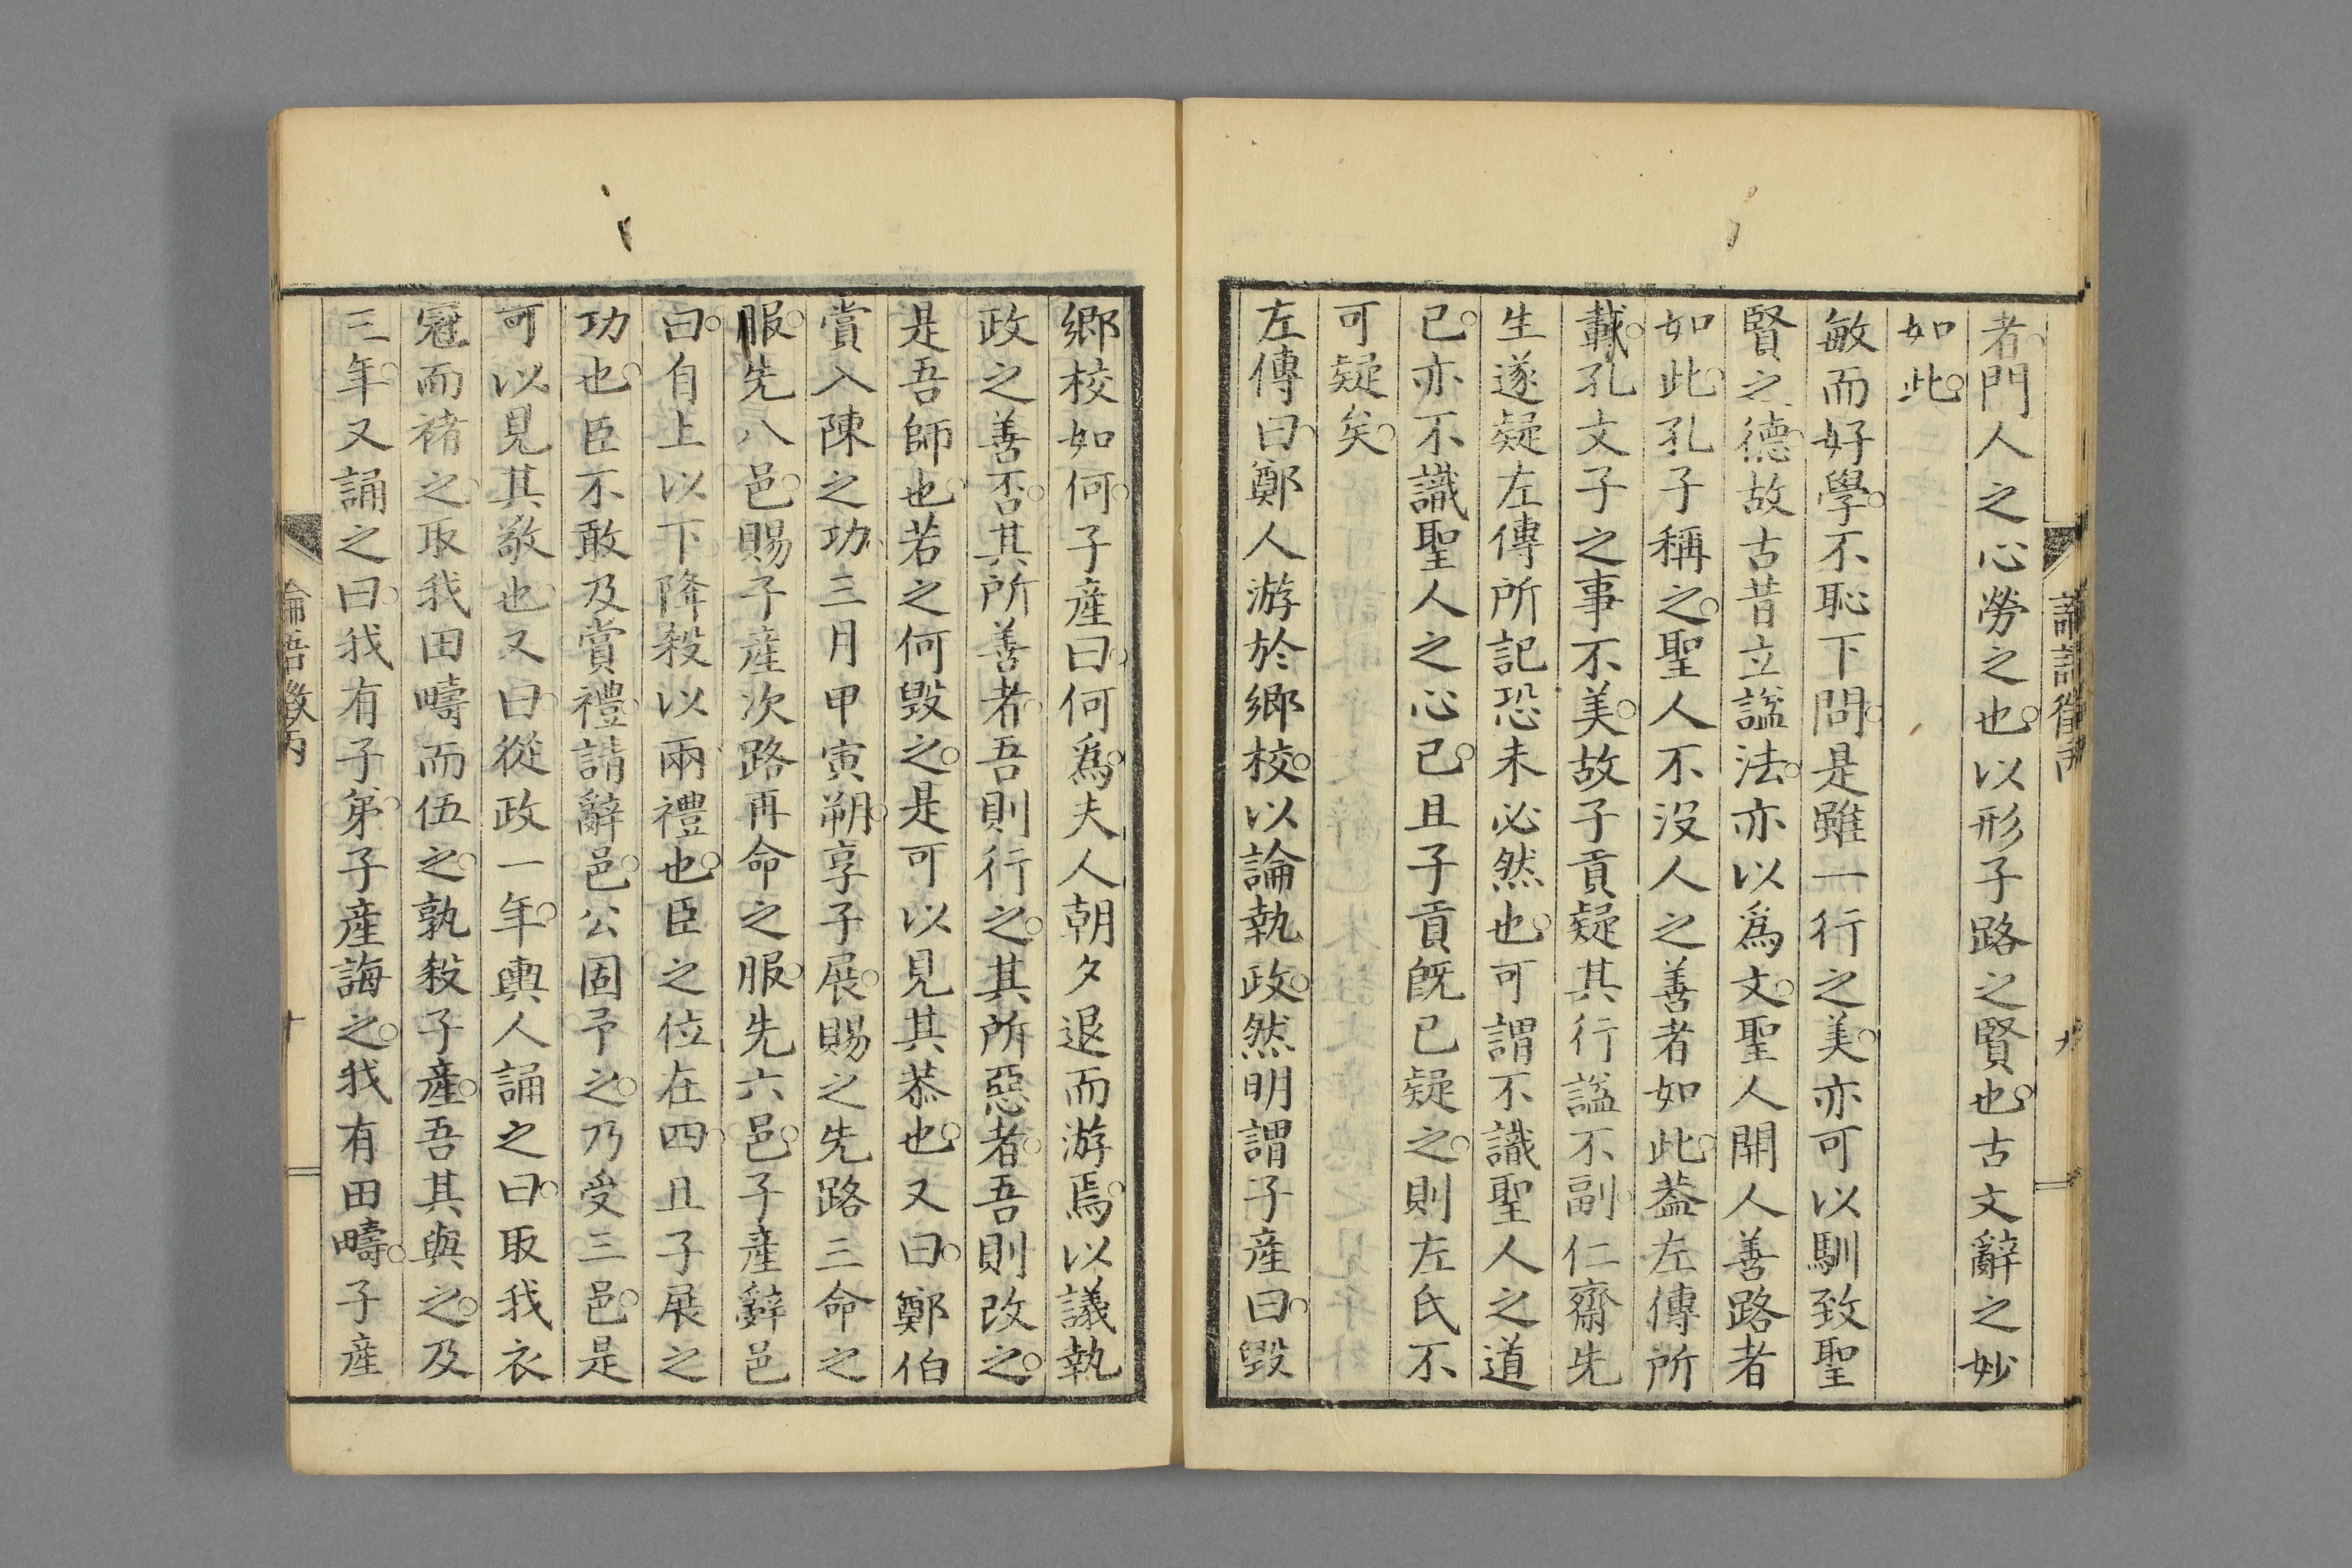 者。門人之心勞之也。以形子路之賢也。古文辭之妙
如此。
敏而好學。不恥下問。是雖一行之美。亦可以馴致聖
賢之德。故古昔立謚法。亦以爲文。聖人開人善路者
如此。孔子稱之。聖人不沒人之善者如此。葢左傳所
載。孔文子之事不美。故子貢疑其行謚不副。仁齋先
生遂疑左傳所記恐未必然也。可謂不識聖人之道
已。亦不識聖人之心已。且子貢旣已疑之。則左氏不
可疑矣。
左傳曰。鄭人游於鄉校。以論執政。然明謂子產曰。毀
鄉校如何。子產曰。何爲。夫人朝夕退而游焉。以議執
政之善否。其所善者。吾則行之。其所惡者。吾則改之。
是吾師也。若之何毀之。是可以見其恭也。又曰。鄭伯
賞入陳之功。三月甲寅朔。享子展。賜之先路三命之
服。先八邑。賜子產次路再命之服。先六邑。子產辭邑
曰。自上以下降殺以兩禮也。臣之位在四。且子展之
功也。臣不敢及賞禮。請辭邑。公固予之。乃受三邑。是
可以見其敬也。又曰。從政一年。輿人誦之曰。取我衣
冠而褚之。取我田疇而伍之。孰殺子產。吾其與之。及
三年。又誦之曰。我有子弟。子產誨之。我有田疇。子產
論語徵丙
十